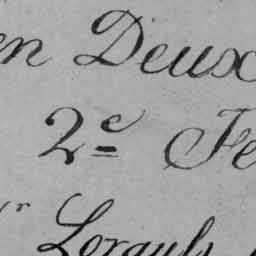 en Deux
2e Fe
r